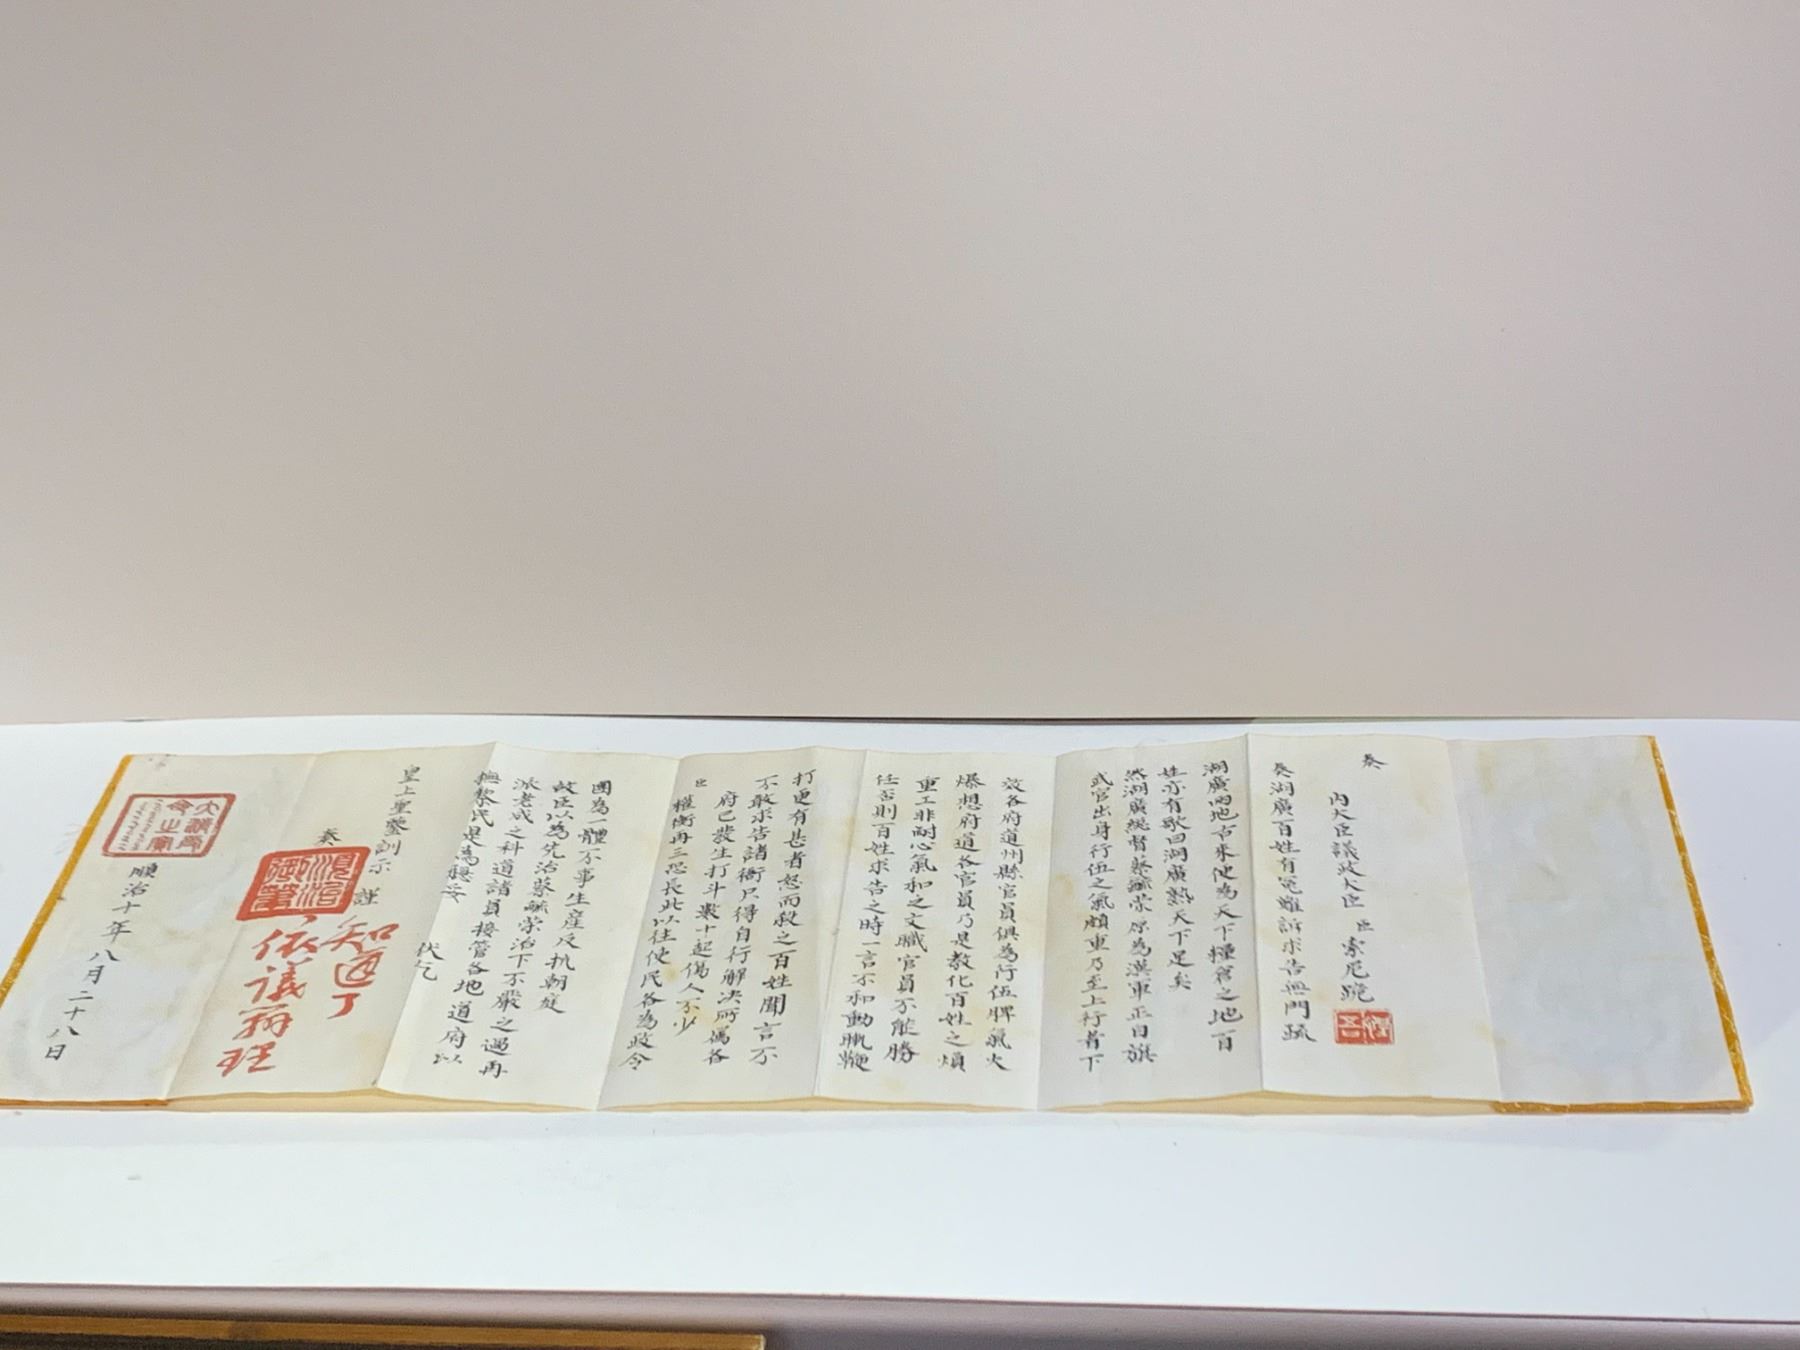 奏
内大臣議政大臣 臣 索尼跪
奏湖廣百姓有冤難訴求告無門疏
湖廣兩地古來便為天下糧倉之地百
姓亦有歌曰湖廣熟天下足矣
然湖廣總督蔡毓榮原為漢軍正白旗
武官出身行伍之氣頗重乃至上行者下
效各府道州縣官員俱為行伍脾氣火
爆想府道各官員乃是教化百姓之煩
重工非耐心氣和之文職官員不能勝
任否則百姓求告之時一言不和動輒鞭
打更有甚者怒而殺之百姓聞言不
不敢求告諸衙只得自行解决所属各
府已發生打斗數十起傷人不少
臣 權衡再三恐長此以往使民各為政令
國為一體不事生産反抗朝廷
故臣以為先治蔡毓榮治下不嚴之過再
派老成之科道諸員接管各地道府以
撫黎民是為穩妥
伏乞
皇上聖鑒訓示 謹
奏
順治御筆
知道了
依議辦理
順治十年八月二十八日